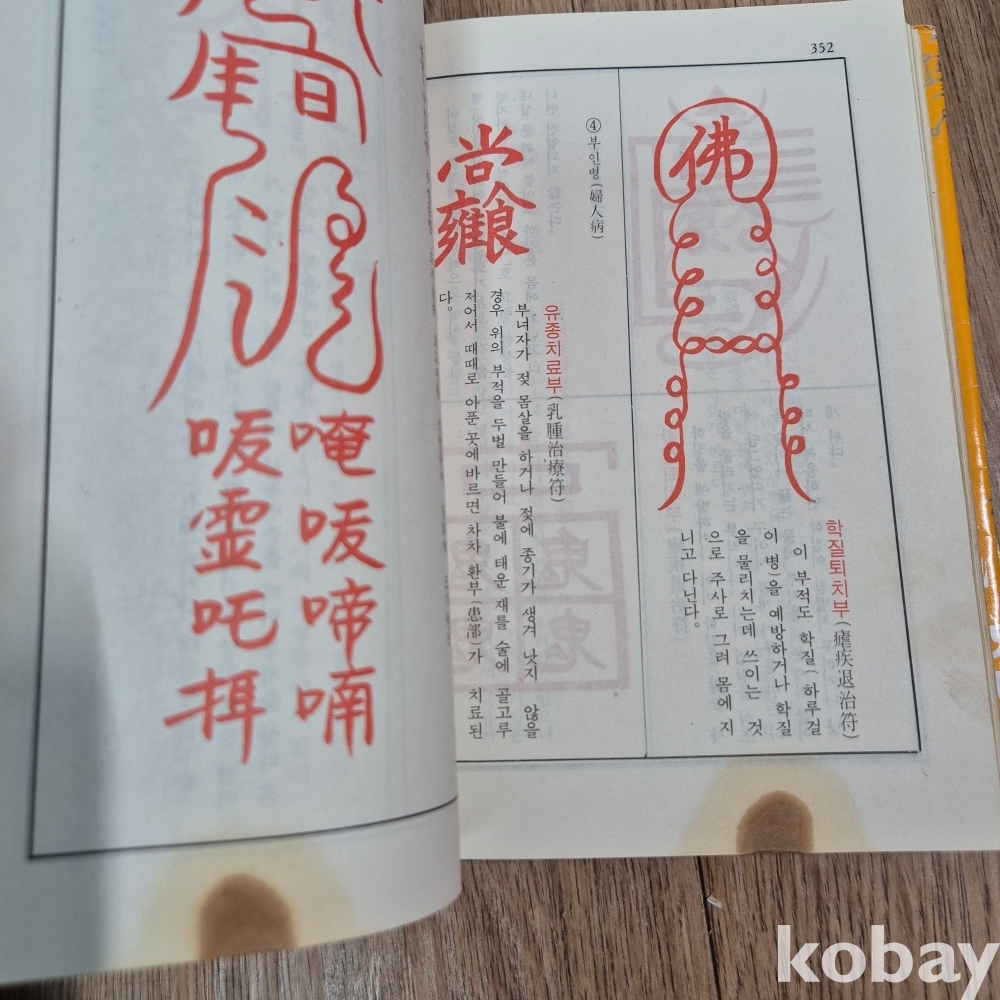 352
佛
학질퇴치부(瘧疾退治符)
이 부적도 학질(하루걸
이 병)을 예방하거나 학질
을 물리치는데 쓰이는 것
으로 주사로 그려 몸에 지
니고 다닌다。
④ 부인병(婦人病)
尙
雍食
유종치료부(乳腫治療符)
부녀자가 젖 몸살을 하거나 젖에 종기가 생겨 낫지 않을
경우 위의 부적을 두벌 만들어 불에 태운 재를 술에 골고루
저어서 때때로 아픈 곳에바르면 차차 환부(患部)가 치료된
다。
日
唵㗳啼喃
㗳靈吒揖
kobay